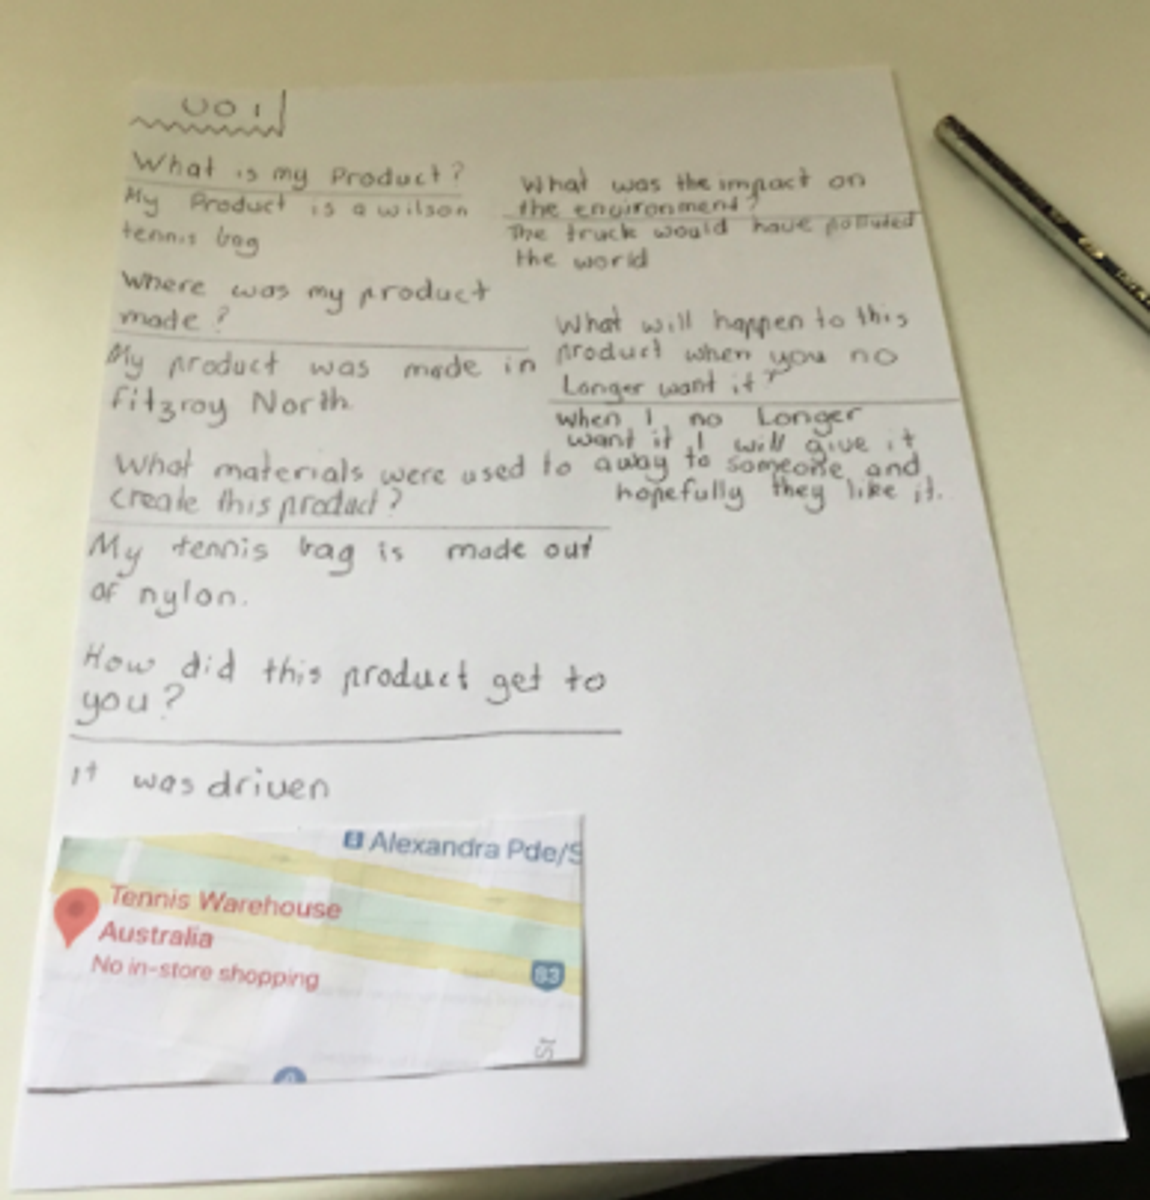 UOI
What is my Product?
My Product is a wilson
tennis bag
Where was my product
made?
My product was made in
Fitzroy North
What materials were used to
create this product?
My tennis bag is made out
of nylon.
How did this product get to
you?
it was driven
What was the impact on
the environment?
The truck would have polluted
the world
What will happen to this
product when you no
Longer want it?
when I no Longer
want it I will give it
away to someone and
hopefully they like it.
Alexandra Pde/S
Tennis Warehouse
Australia
No in-store shopping
83
St